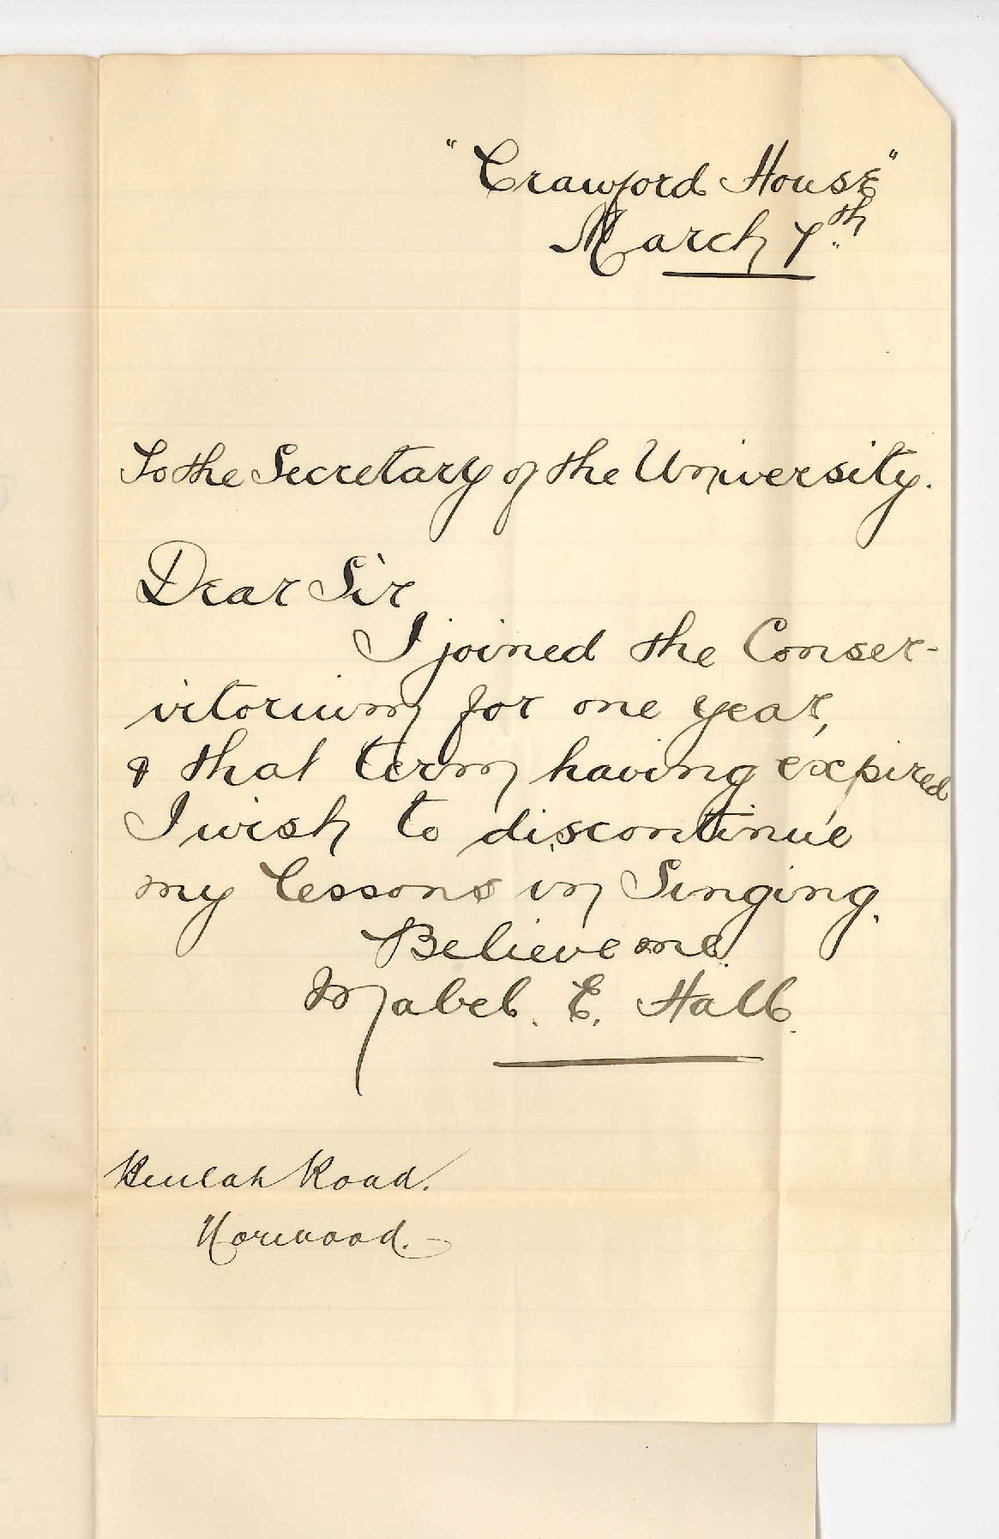 "Crawford House"
March 7th
To the Secretary of the University.
Dear Sir
I joined the Conser-
vitorium for one year,
& that term having expired
I wish to discontinue
my lessons in Singing.
Believe me
Mabel. E. Hall.
Beulah Road.
Norwood.